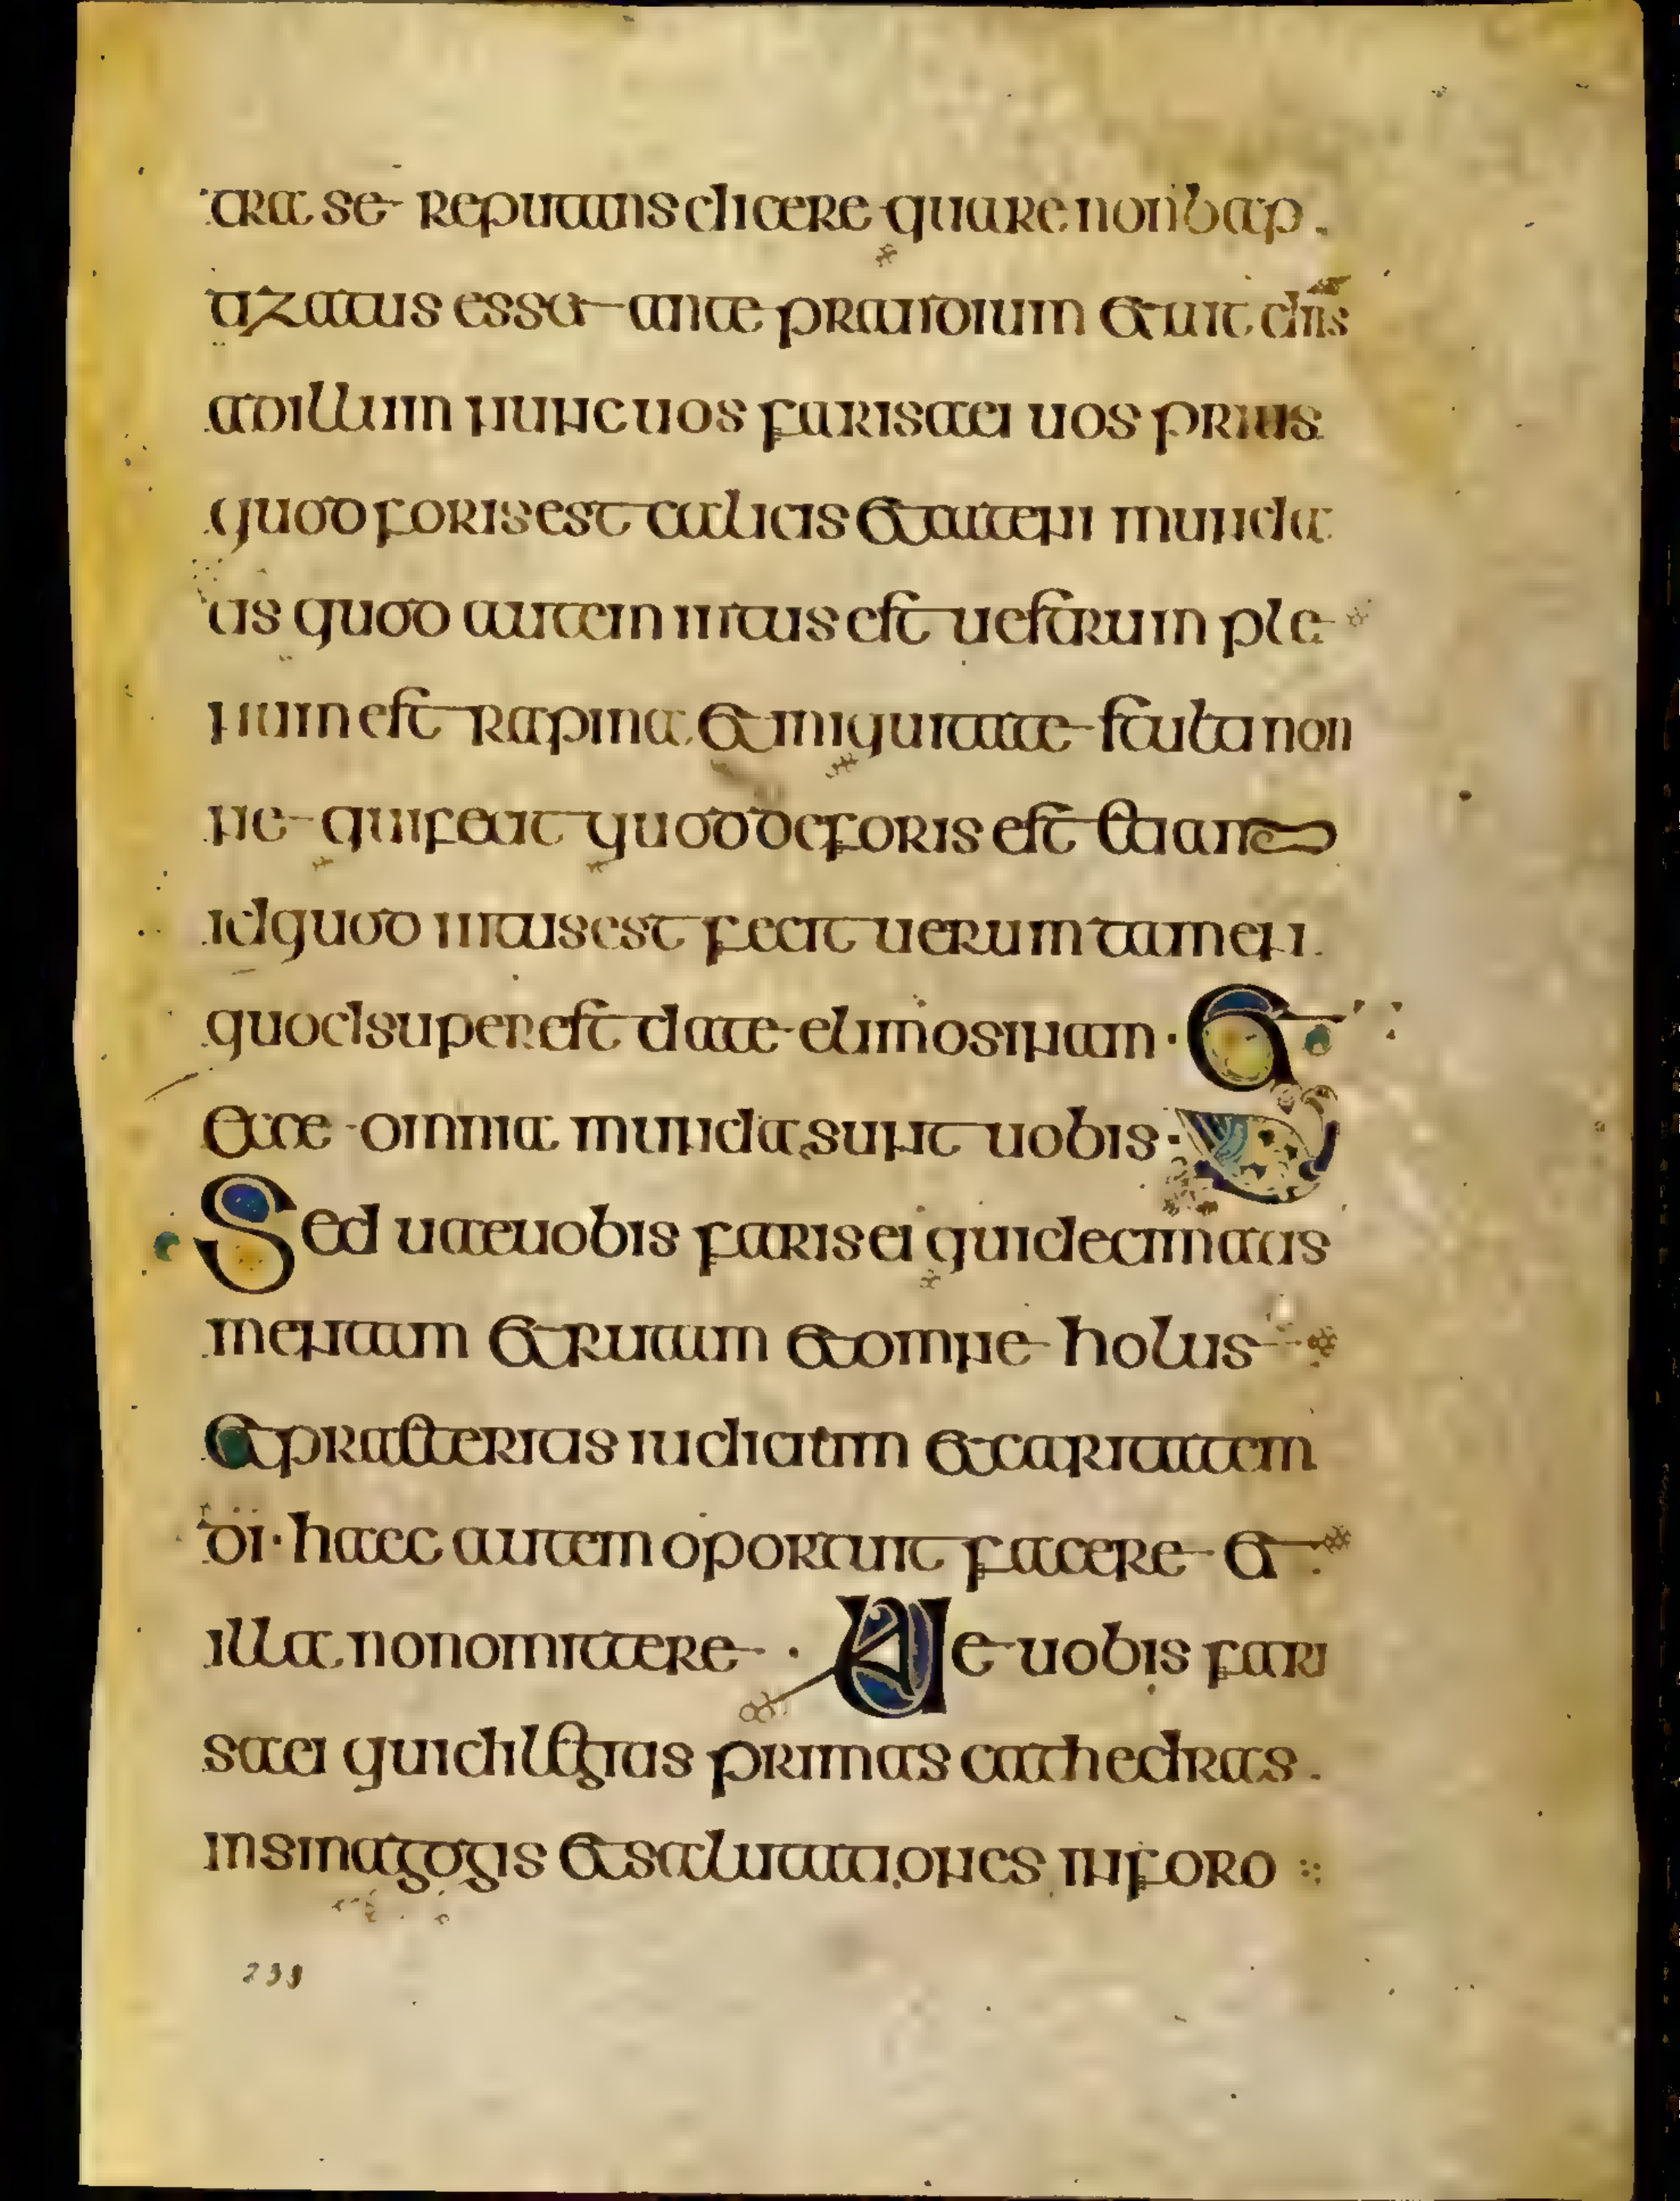 tra se reputans dicere quare non bap
tizatus esset ante prandium et ait dns
ad illum nunc vos farisaei uos prius
quod foris est calicis et catini munda
tis quod autem intus est uestrum ple
num est rapina et iniquitate stulti non
ne qui fecit quod de foris est etiam
id quod intus est fecit uerum tamen
quod super est date elimosinam · et
ecce omnia munda sunt uobis ·
Sed uae uobis farisei qui decimatis
mentam et rutam et omne holus
et praeteritis iudicium et caritatem
di · haec autem oportuit facere et
illa non omittere · Uae uobis fari
saei qui diligitis primas cathedras
in sinagogis et salutationes in foro
233